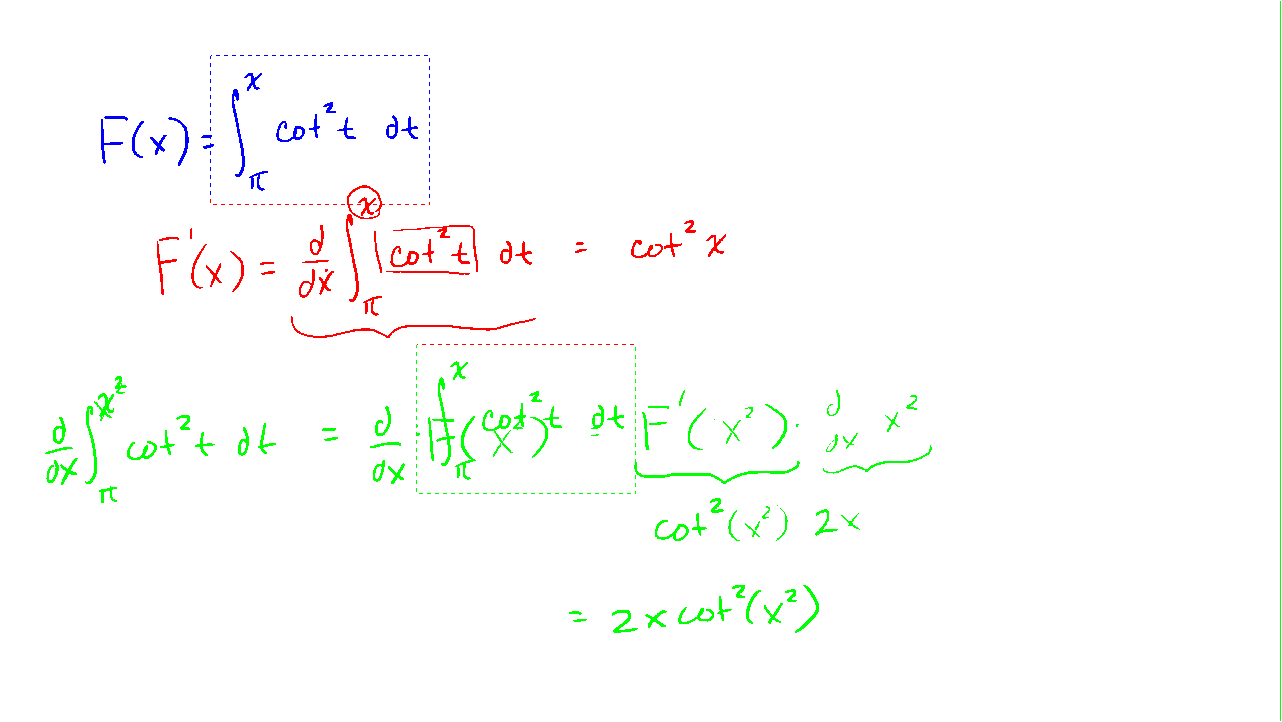 F(x) = ∫_π^x cot² t dt
F'(x) = d/dx ∫_π^x cot² t dt = cot² x
d/dx ∫_π^{x²} cot² t dt = d/dx F(x²) ∫_π^x cot² t dt F'(x²) · d/dx x²
cot²(x²) 2x
= 2x cot²(x²)